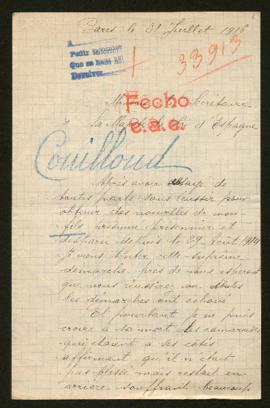 Paris le 31 Juillet 1918
A
Pedir
Que se haga
33913
Secrétaire
Fecho
e.a.e.
Sa Majesté le Roi d'Espagne
Couilloud
Après avoir essayé de
toutes parts sans réussir pour
obtenir des nouvelles de mon
fils présumé prisonnier et
disparu depuis le 29 Août 1914
Je viens tenter cette suprême
démarche près de vous espérant
que vous réussirez où toutes
les démarches ont échoué
Et pourtant je ne puis
croire à sa mort les camarades
qui étaient à ses côtés
affirmant qu'il n'était
pas blessé mais restait en
arrière souffrant beaucoup